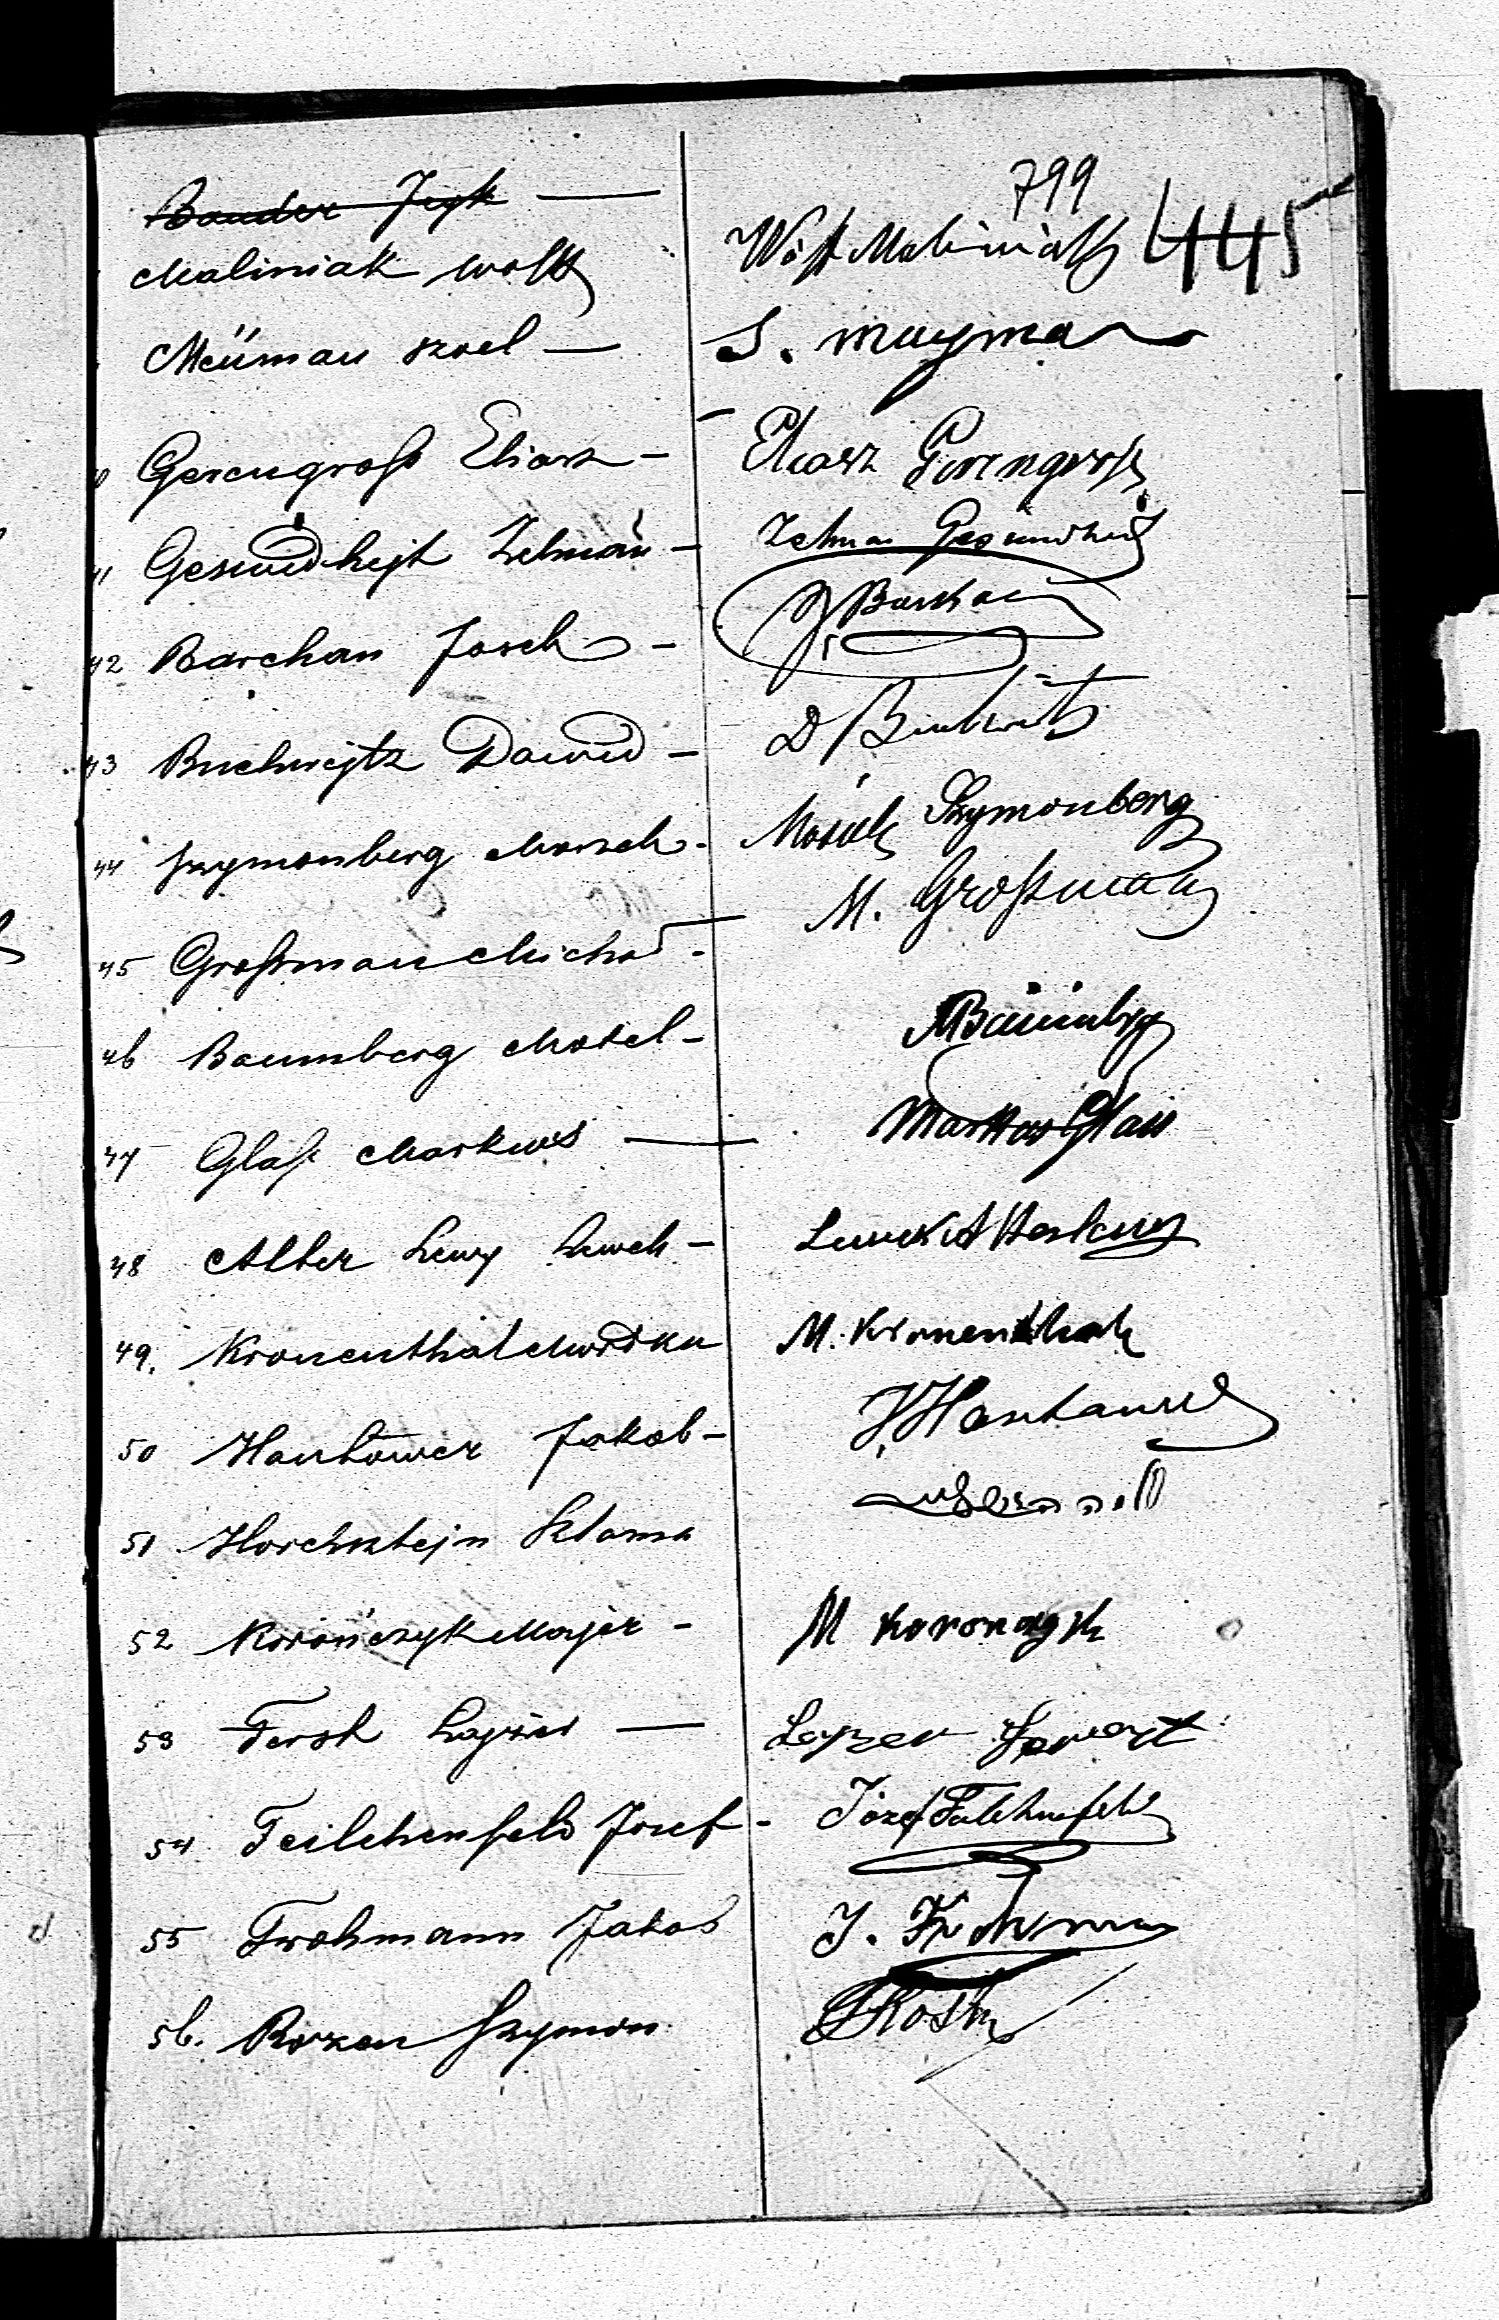 799
445
Bander Icyk —
Maliniak Wolf Wolf Maliniak
Mejman Szoel — S. Majman
Gerengross Eliasz - Eliasz Gerengross
41 Gesundhejt Zelman - Zelman Gesundheit
42 Barchan Josek - J. Barchan
43 Buchwejtz Dawid - D
44 Szymonberg Moszek - Mosiek Szymonberg
45 Großman Michał - M. Großman
46 Baumberg Motel - M Baumberg
47 Glaß Markus — Markus Glass
48 Alter Lewy Lewek -
49. Kronenthal Mordka M. Kronenthal
50 Hantower Jakob - J. Hantower
51 Horchsztejn Szlama
52 Korończyk Majer - M Koronczyk
53 Fersk Lajzer — Lajzer
54 Teilchenfeld Josef - Józef Tailchenfeld
55 Frohmann Jakob J. Frohman
56. Rozen Szymon